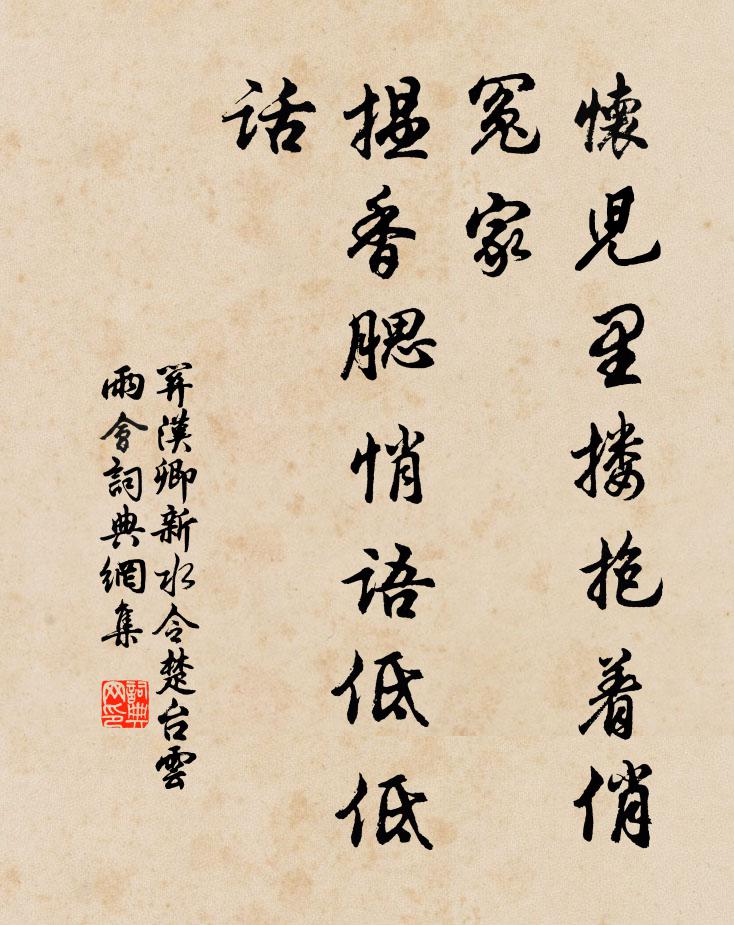 懷兒里摟抱着俏
冤家
揾香腮悄語低低
话
関漢卿新水令楚台雲
雨會詞典網集
詞典
网印